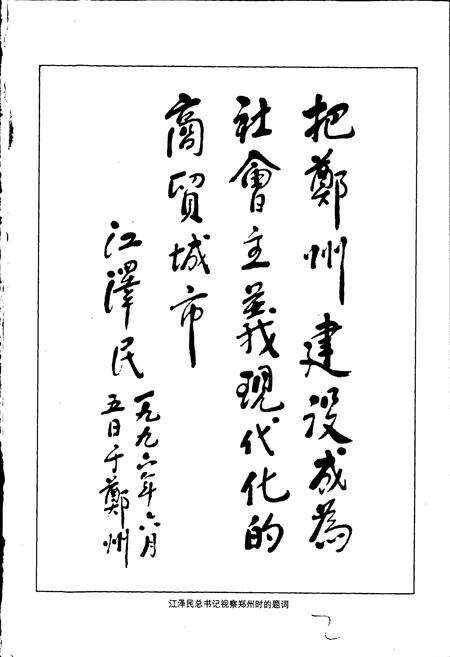 把鄭州建设成為
社會主義現代化的
商貿城市
江澤民
一九九六年六月
五日于鄭州
江泽民总书记视察郑州时的题词